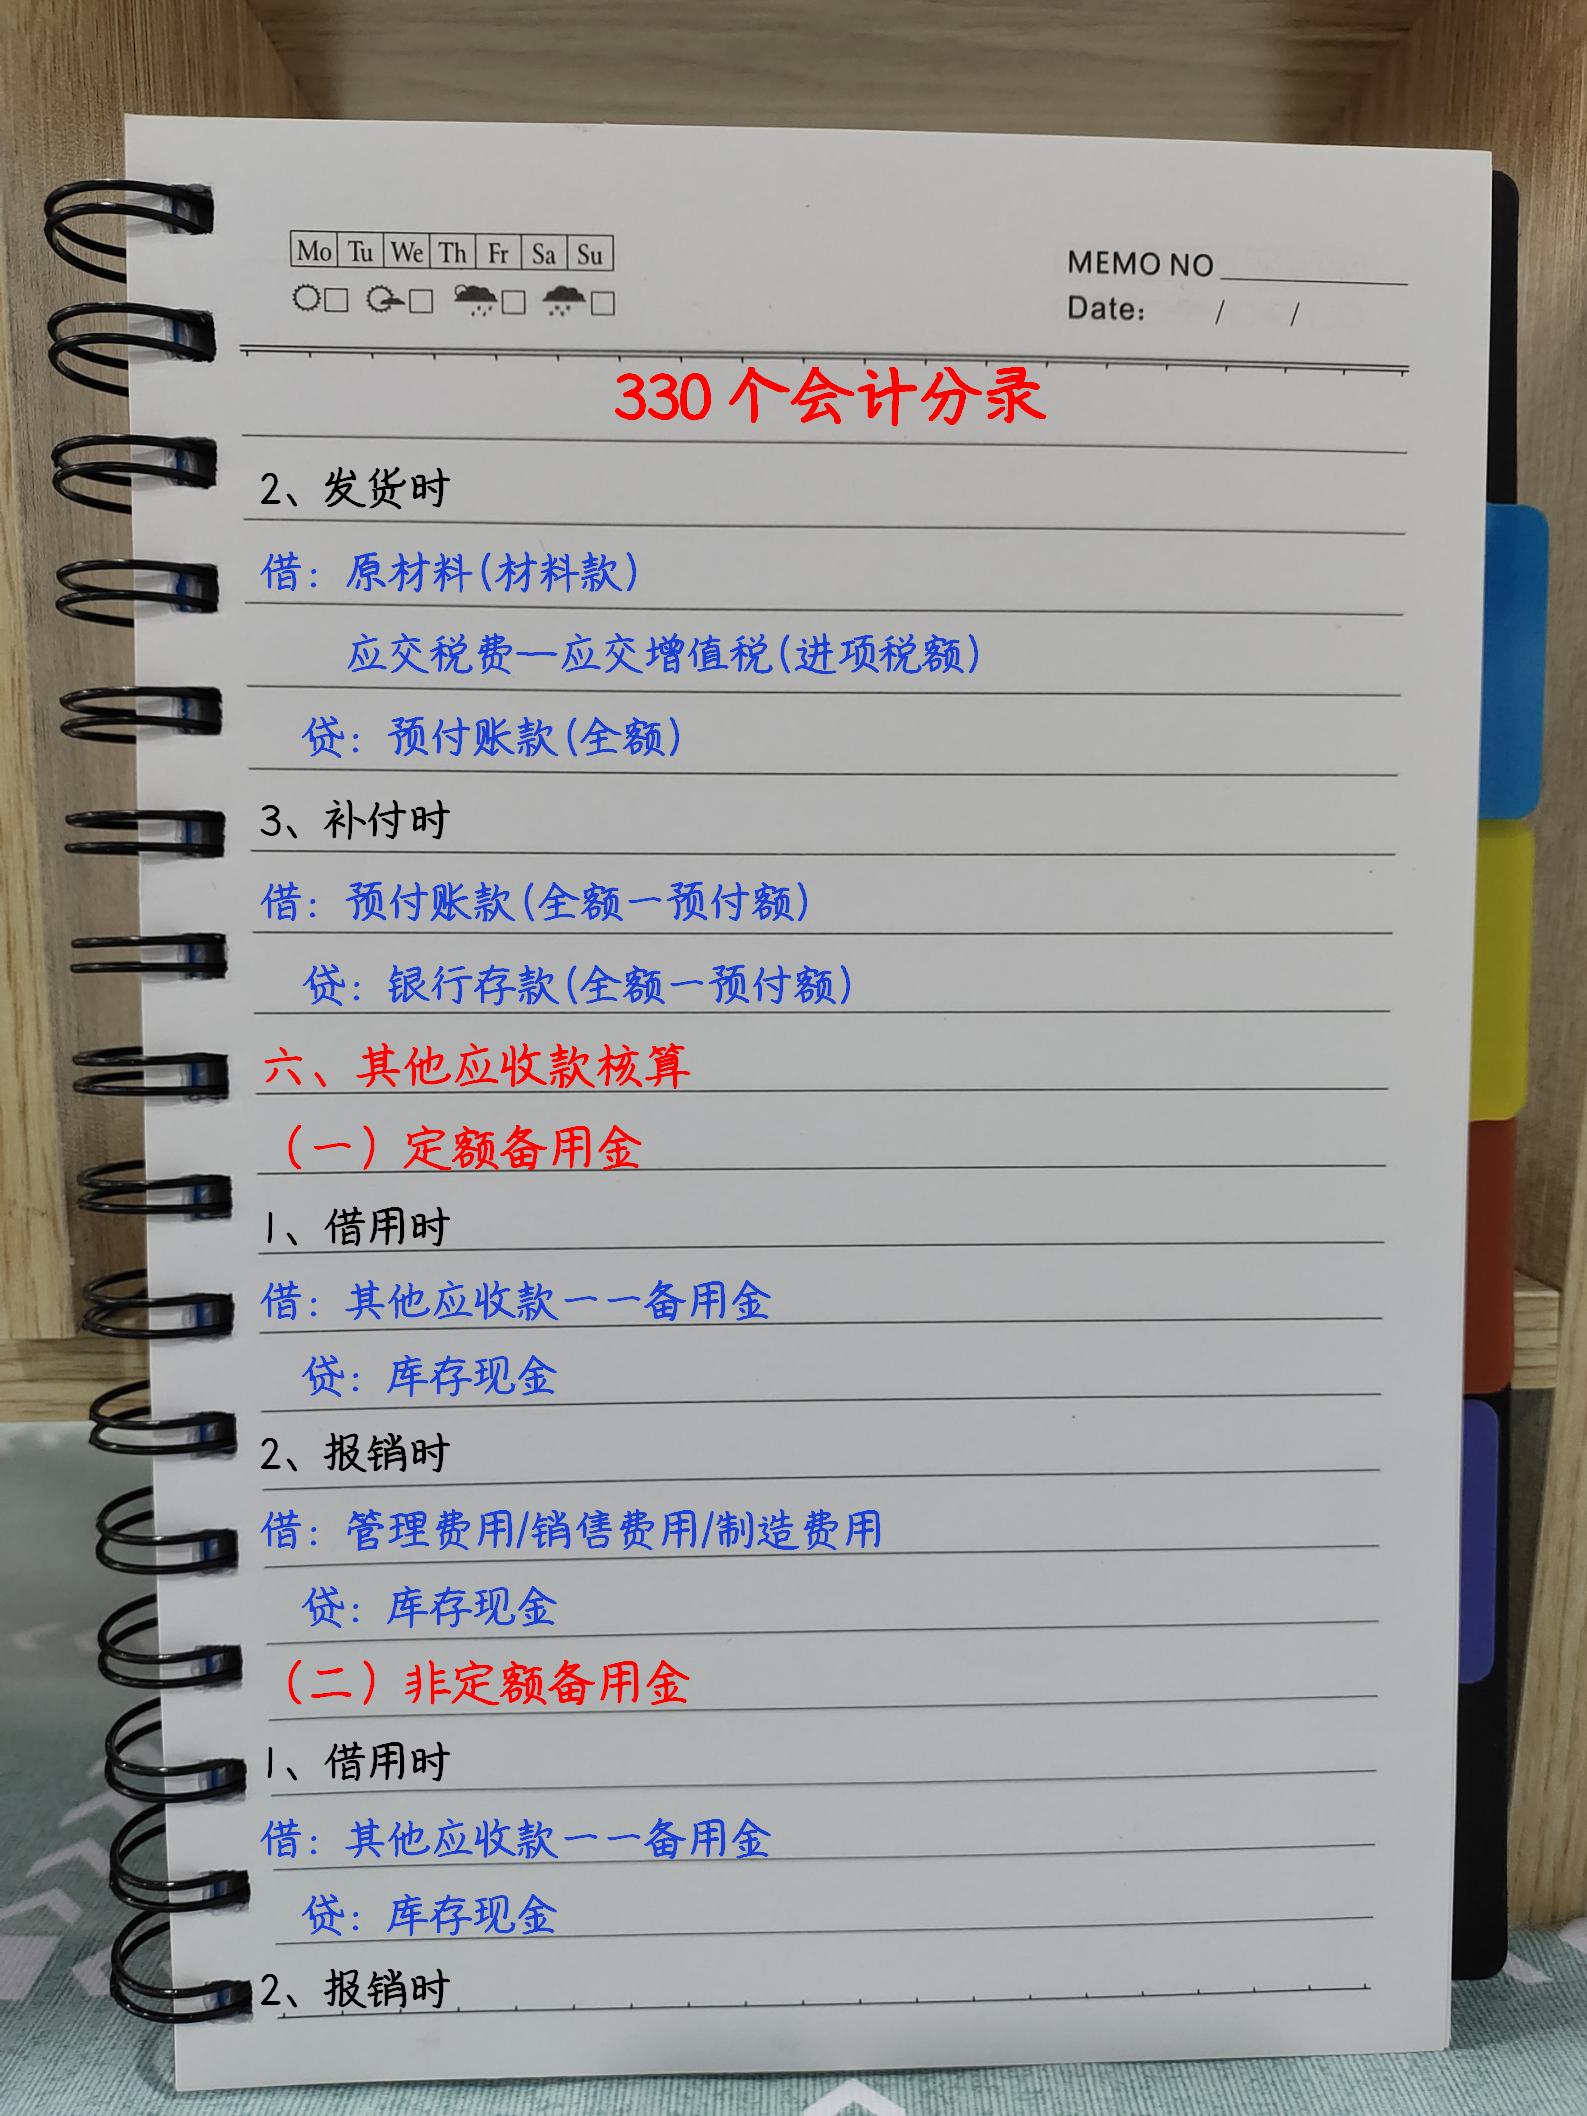 Mo Tu We Th Fr Sa Su
MEMO NO
Date: / /
330个会计分录
2、发货时
借：原材料(材料款)
应交税费—应交增值税(进项税额)
贷：预付账款(全额)
3、补付时
借：预付账款(全额一预付额)
贷：银行存款(全额一预付额)
六、其他应收款核算
（一）定额备用金
1、借用时
借：其他应收款一一备用金
贷：库存现金
2、报销时
借：管理费用/销售费用/制造费用
贷：库存现金
（二）非定额备用金
1、借用时
借：其他应收款一一备用金
贷：库存现金
2、报销时